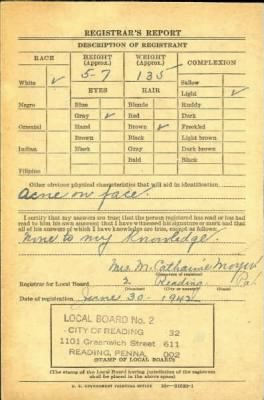 REGISTRAR'S REPORT
DESCRIPTION OF REGISTRANT
RACE HEIGHT (Approx.) WEIGHT (Approx.) COMPLEXION
5-7 135 Sallow
White ✓ EYES HAIR Light ✓
Negro Blue Blonde Ruddy
Gray ✓ Red Dark
Oriental Hazel Brown ✓ Freckled
Brown Black Light brown
Indian Black Gray Dark brown
Bald Black
Filipino
Other obvious physical characteristics that will aid in identification
Acne on face.
I certify that my answers are true; that the person registered has read or has had
read to him his own answers; that I have witnessed his signature or mark and that
all of his answers of which I have knowledge are true, except as follows:
None to my knowledge.
Mrs. M. Catharine Moyer
Registrar for Local Board 2 Reading Pa
(Number) (City or county) (State)
Date of registration June 30 - 1942
LOCAL BOARD No. 2
CITY OF READING 32
1101 Greenwich Street 611
READING, PENNA. 002
(STAMP OF LOCAL BOARD)
(The stamp of the Local Board having jurisdiction of the registrant
shall be placed in the above space)
U. S. GOVERNMENT PRINTING OFFICE